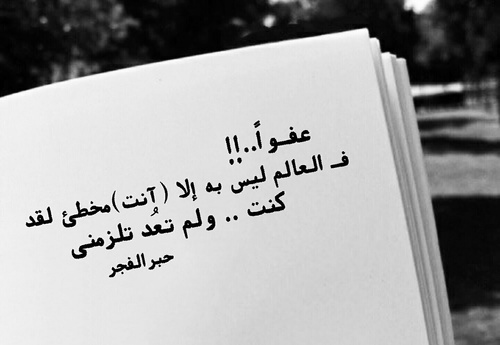 عفــواً..!!
فـ العالم ليس به إلا (آنت)مخطئ لقد
كنت .. ولم تعُد تلزمنى
حبر الفجر